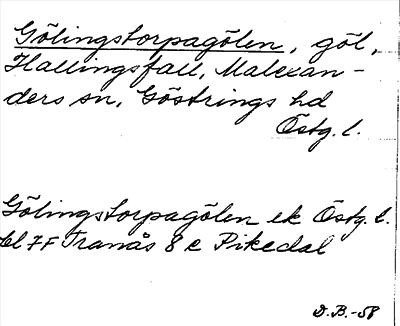 Gölingstorpagölen, göl,
Hallingsfall, Malexan-
ders sn, Göstrings hd
Östg. l.
Gölingstorpagölen ek Östg. l.
bl 7F Tranås 8 e Pikedal
D.B.-58